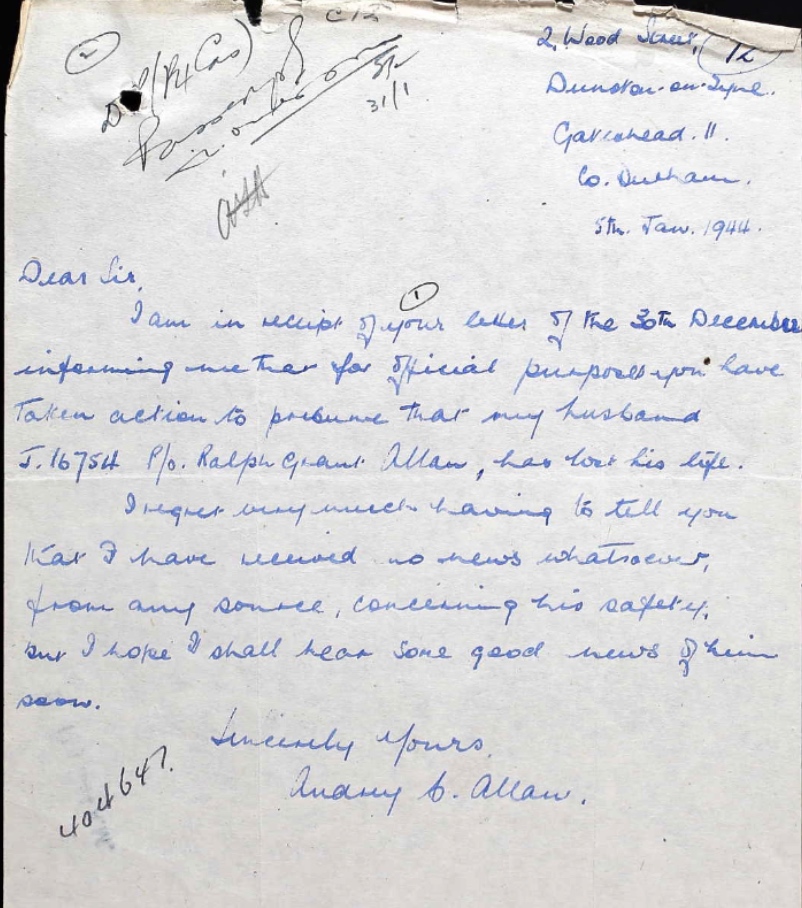 2, Wood Street,
12
Dunston-on-Tyne.
Gateshead. 11.
Co. Durham.
5th. Jan. 1944.
2
31/1
Dear Sir,
1
I am in receipt of your letter of the 30th December
informing me that for official purposes you have
taken action to presume that my husband
J.16754 P/o. Ralph Grant Allan, has lost his life.
I regret very much having to tell you
that I have received no news whatsoever,
from any source, concerning his safety,
but I hope I shall hear some good news of him
soon.
Sincerely Yours,
Audrey C. Allan.
404647.